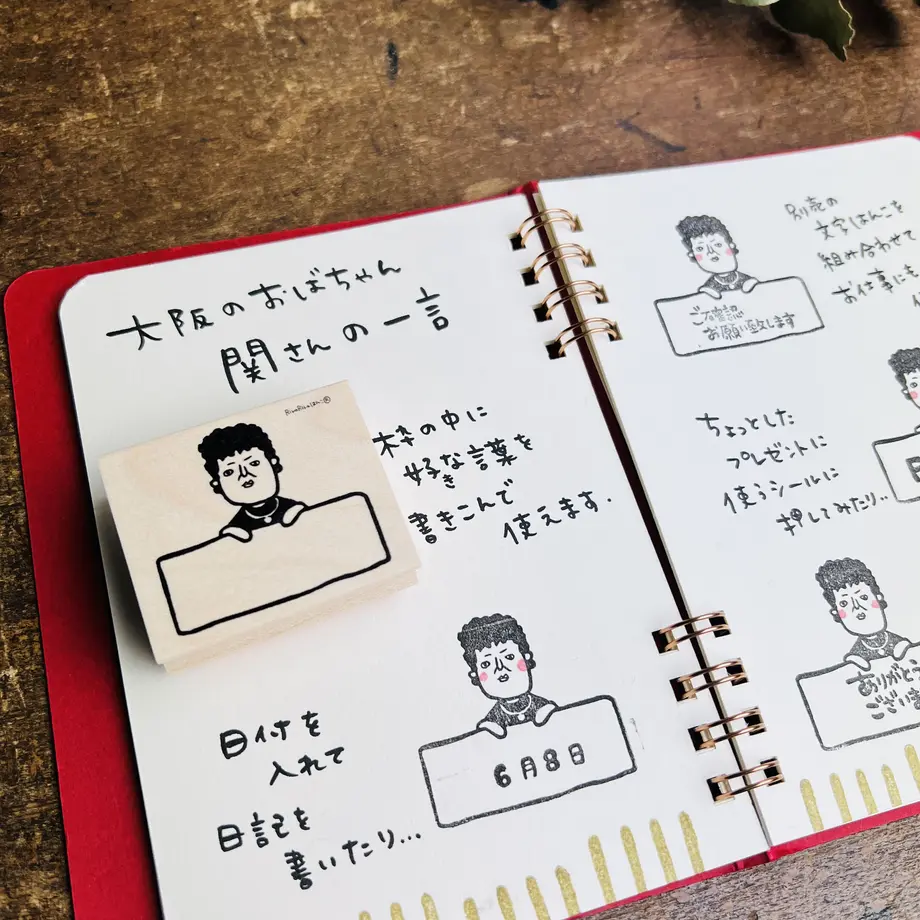 大阪のおばちゃん
関さんの一言
枠の中に
好きな言葉を
書きこんで
使えます.
6月8日
日付を
入れて
日記を
書いたり...
別売の
文字はんこを
組み合わせて
お仕事にも
ご確認
お願い致します
ちょっとした
プレゼントに
使うシールに
押してみたり..
ありがとう
ございま